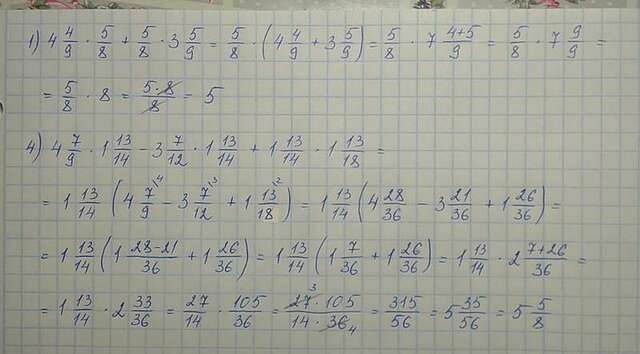 1) 4 4/9 · 5/8 + 5/8 · 3 5/9 = 5/8 · (4 4/9 + 3 5/9) = 5/8 · 7 4+5/9 = 5/8 · 7 9/9 =
= 5/8 · 8 = 5·8/8 = 5
4) 4 7/9 · 1 13/14 - 3 7/12 · 1 13/14 + 1 13/14 · 1 13/18 =
= 1 13/14 (4 7\4/9 - 3 7\3/12 + 1 13\2/18) = 1 13/14 (4 28/36 - 3 21/36 + 1 26/36) =
= 1 13/14 (1 28-21/36 + 1 26/36) = 1 13/14 (1 7/36 + 1 26/36) = 1 13/14 · 2 7+26/36 =
= 1 13/14 · 2 33/36 = 27/14 · 105/36 = 27 3 · 105/14 · 36 4 = 315/56 = 5 35/56 = 5 5/8